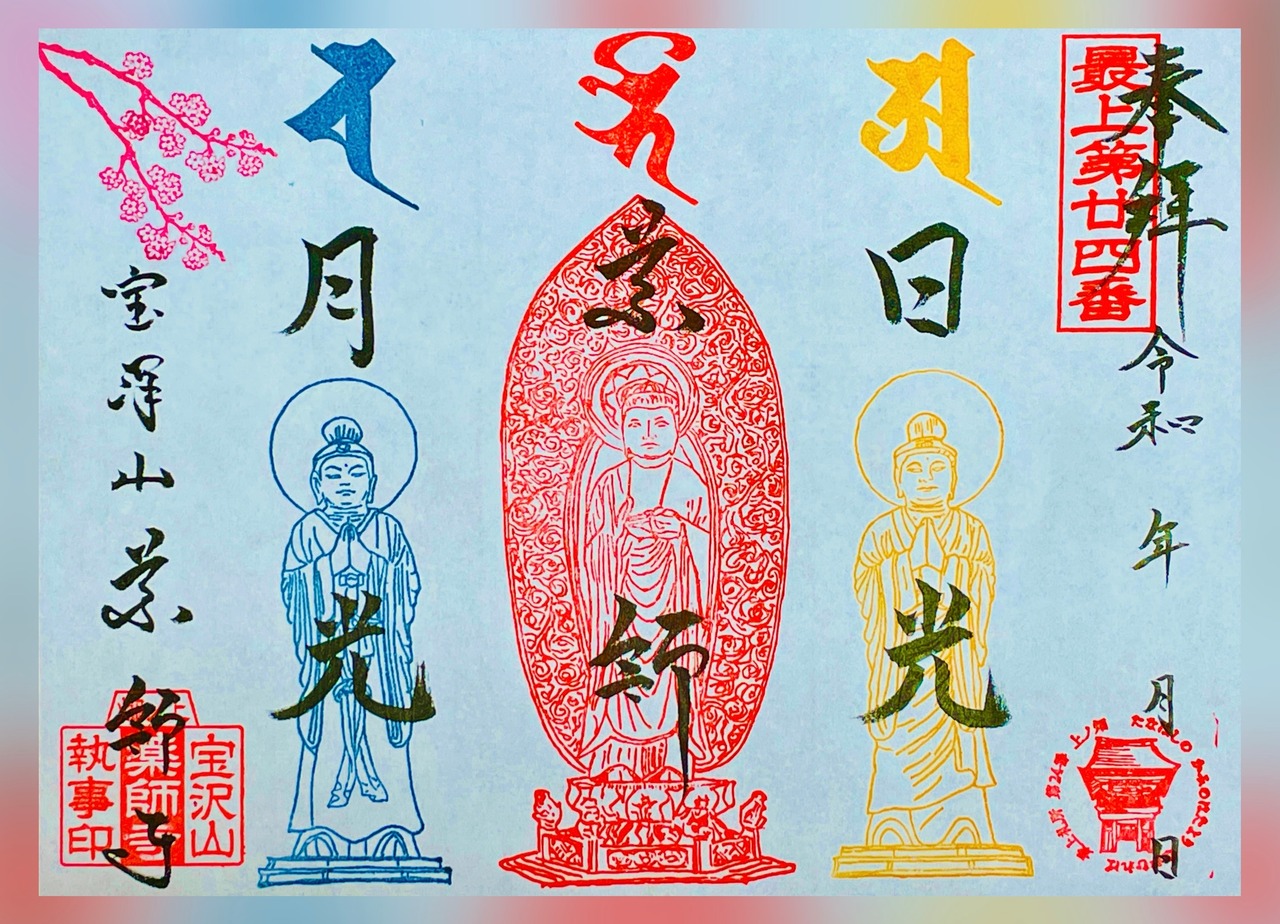 奉拝
最上第廿四番
令和 年 月 日
上ノ畑
日光
薬師
月光
宝澤山薬師寺
宝沢山
薬師寺
執事印